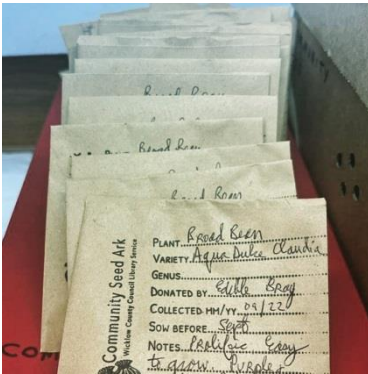 Broad Bean
Broad Bean
Broad Bean
Community Seed Ark
Wicklow County Council Library Service
PLANT Broad Bean
VARIETY Aqua Dulce Claudia
GENUS
DONATED BY Edible Bray
COLLECTED MM/YY 09/22
SOW BEFORE Sept
NOTES Prolific Easy
to grow. Purple
COM